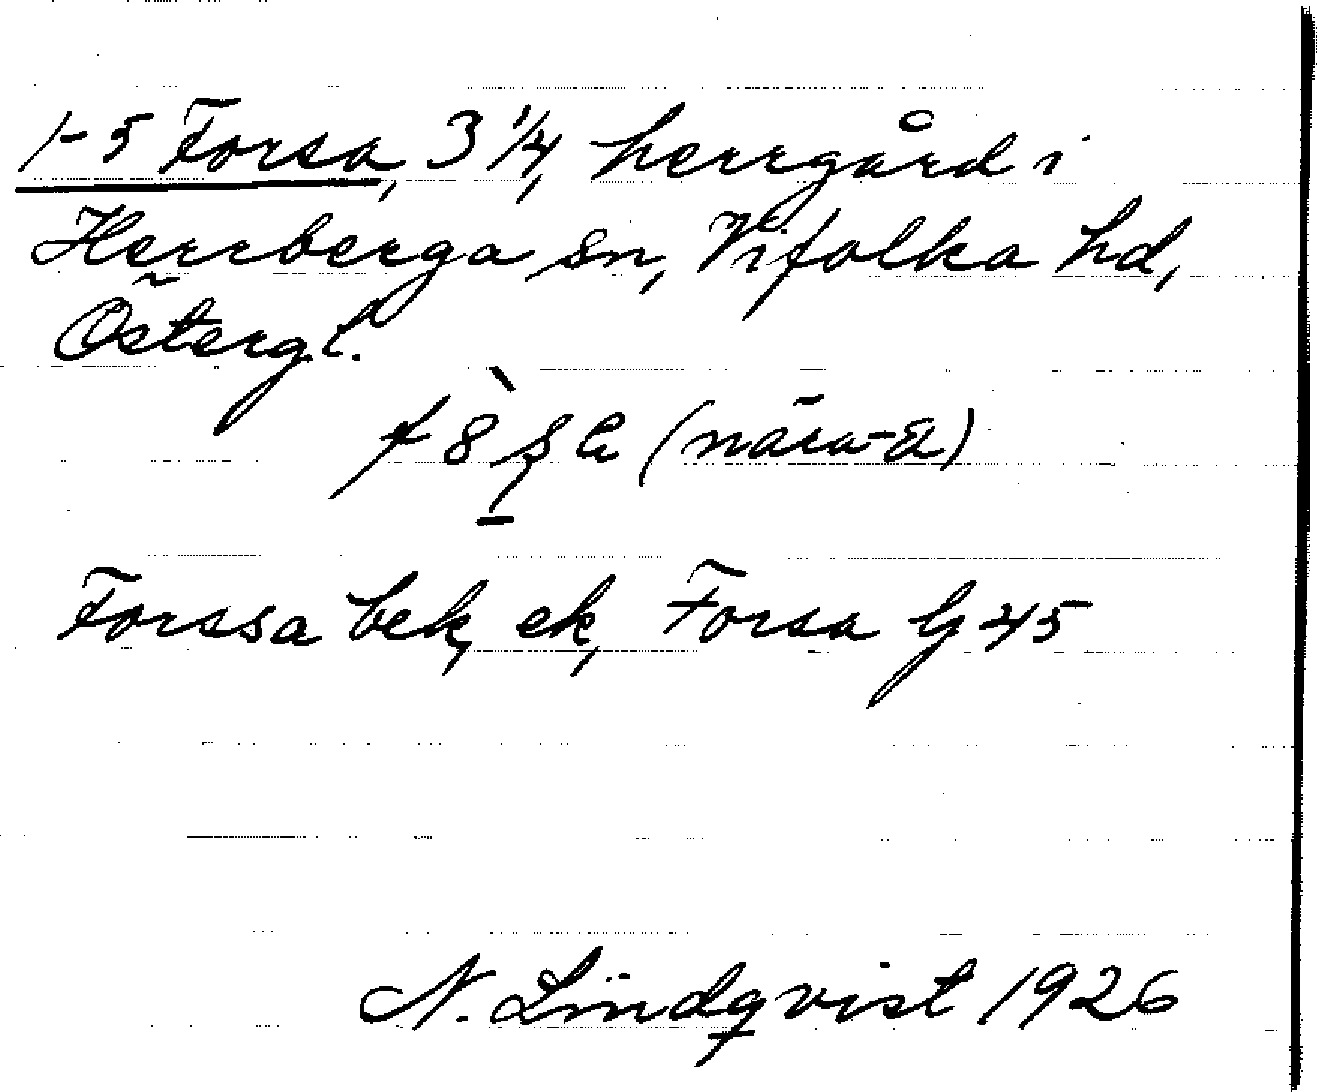 1-5 Forsa, 3 1/4, herrgård i
Herrberga sn, Vifolka hd,
Östergl.
(nära -a)
Forssa bek, ek, Forsa G 45
N. Lindqvist 1926